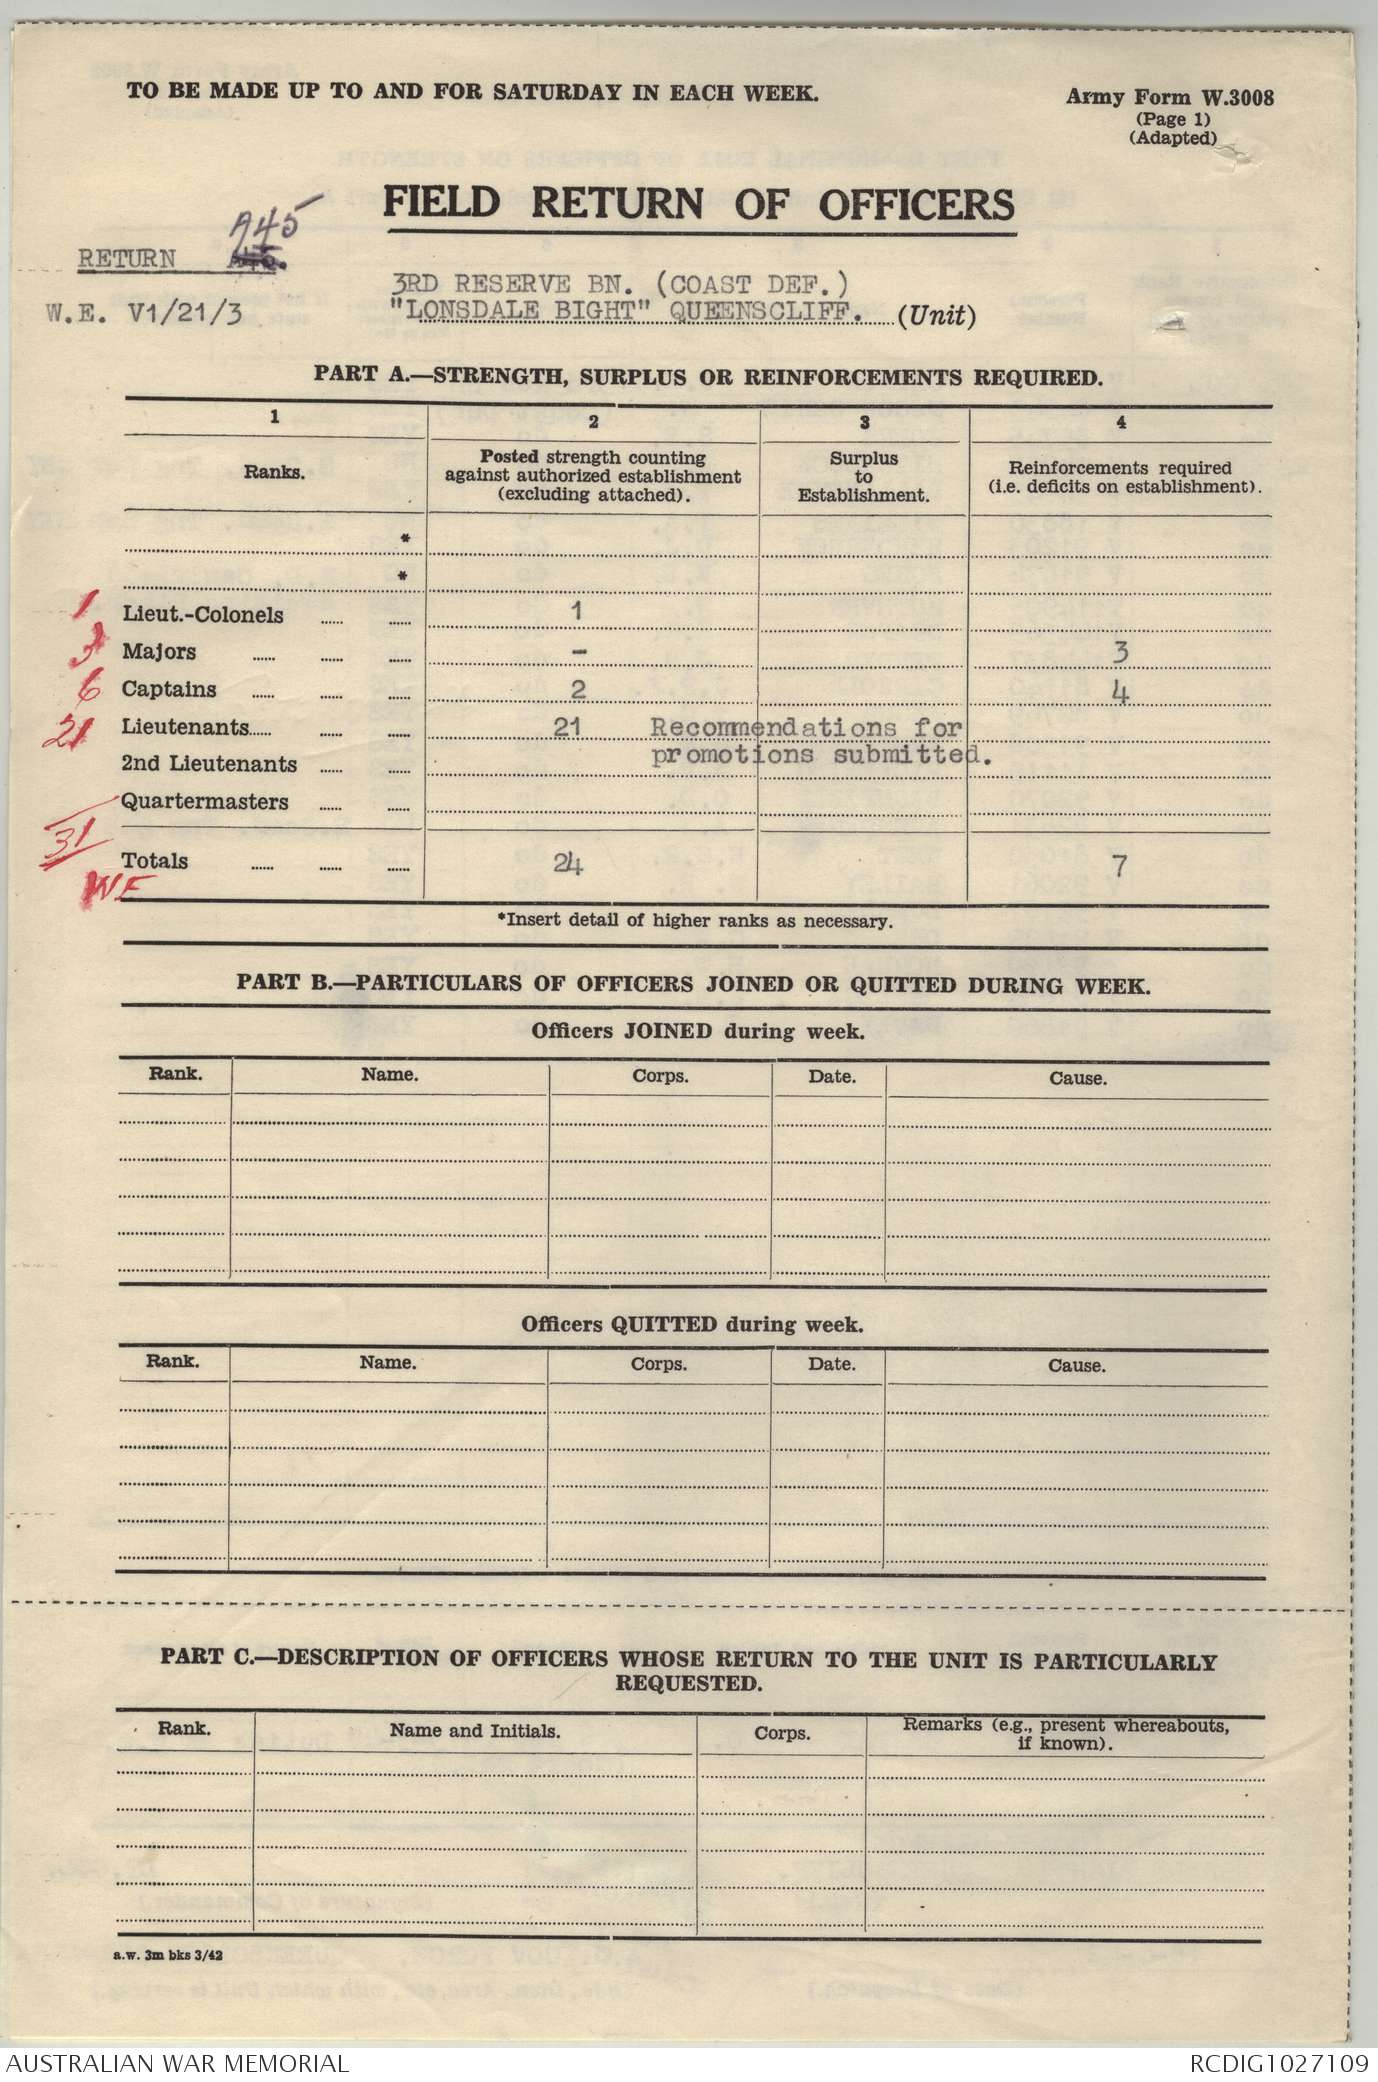 TO BE MADE UP TO AND FOR SATURDAY IN EACH WEEK.
Army Form W.3008
(Page 1)
(Adapted)
FIELD RETURN OF OFFICERS
A45
RETURN A45.
3RD RESERVE BN. (COAST DEF.)
W.E. V1/21/3 "LONSDALE BIGHT" QUEENSCLIFF. (Unit)
PART A.—STRENGTH, SURPLUS OR REINFORCEMENTS REQUIRED.
1 2 3 4
Ranks.
Posted strength counting
against authorized establishment
(excluding attached).
Surplus
to
Establishment.
Reinforcements required
(i.e. deficits on establishment).
*
*
1 Lieut.-Colonels 1
3 Majors - 3
6 Captains 2 4
21 Lieutenants 21 Recommendations for
2nd Lieutenants promotions submitted.
Quartermasters
31 Totals 24 7
WE
*Insert detail of higher ranks as necessary.
PART B.—PARTICULARS OF OFFICERS JOINED OR QUITTED DURING WEEK.
Officers JOINED during week.
Rank. Name. Corps. Date. Cause.
Officers QUITTED during week.
Rank. Name. Corps. Date. Cause.
PART C.—DESCRIPTION OF OFFICERS WHOSE RETURN TO THE UNIT IS PARTICULARLY
REQUESTED.
Rank. Name and Initials. Corps. Remarks (e.g., present whereabouts,
if known).
a.w. 3m bks 3/42
AUSTRALIAN WAR MEMORIAL RCDIG1027109